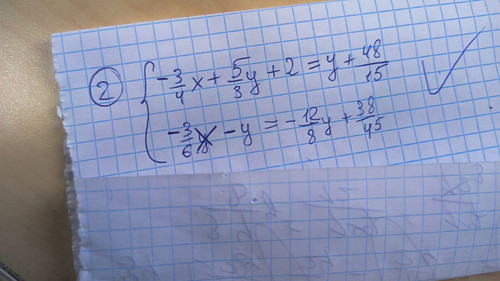 ② { -3/4 x + 5/3 y + 2 = y + 48/15 ✓
-3/6 x - y = -12/8 y + 38/45